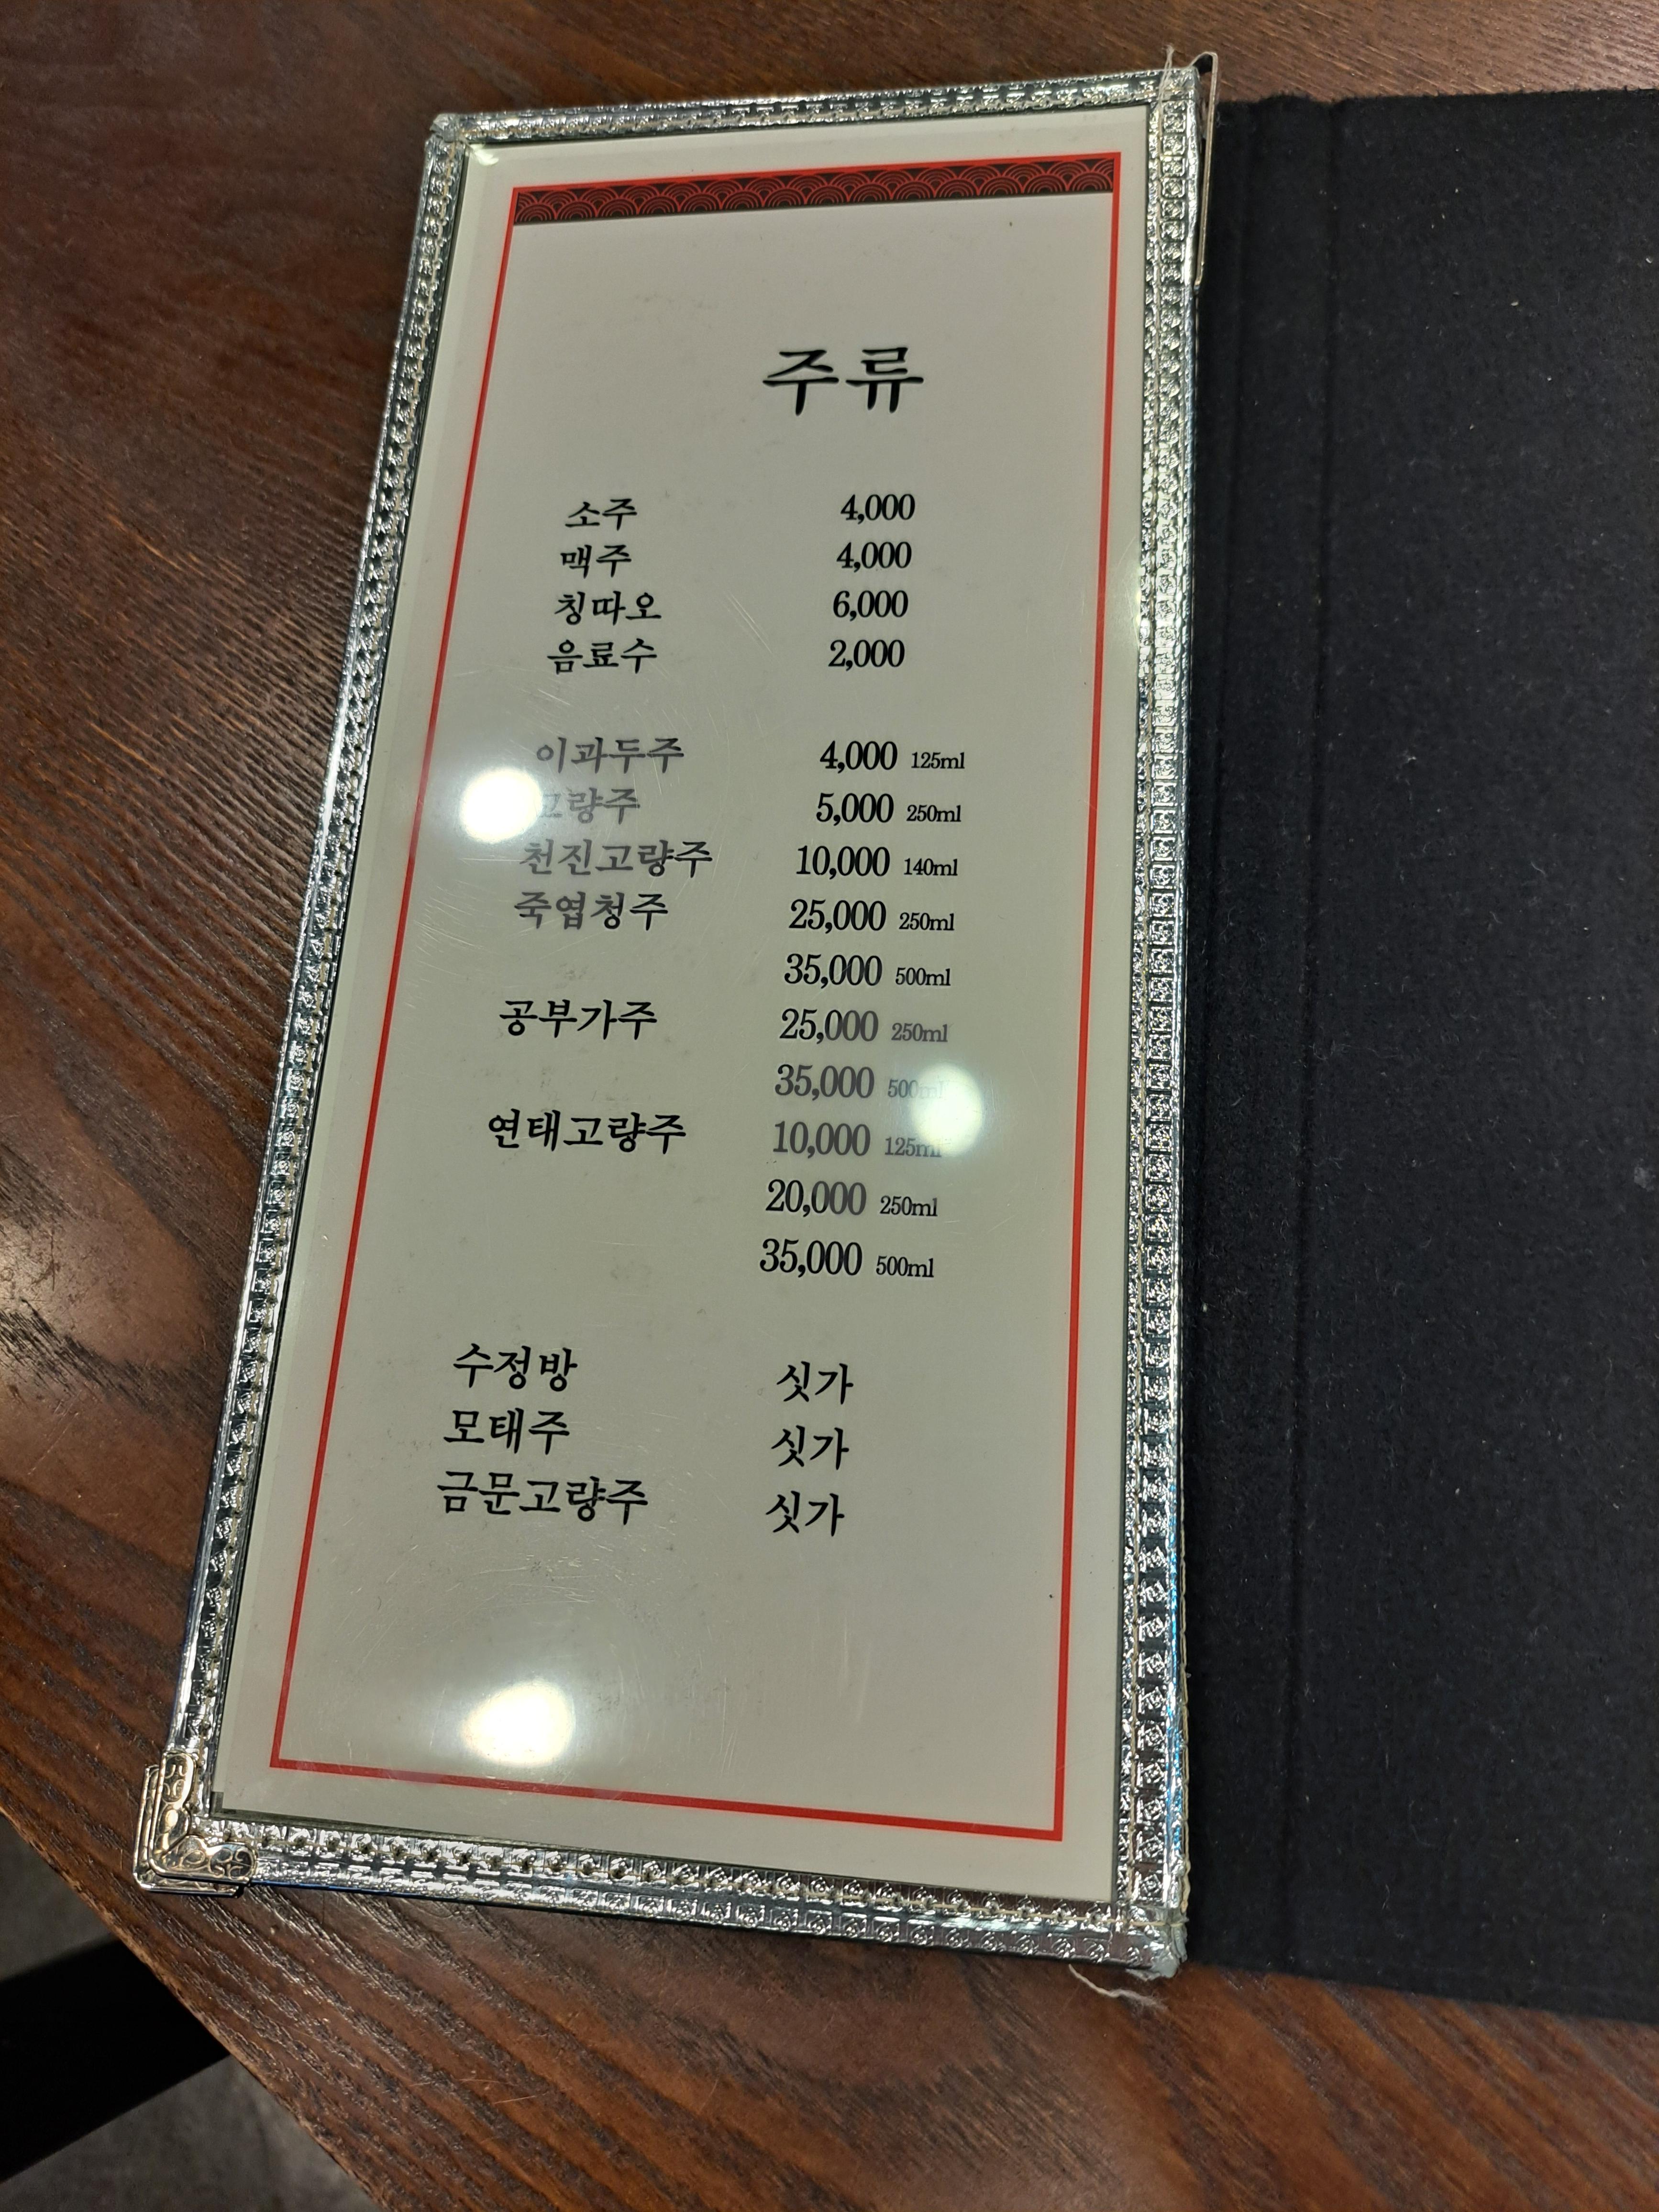 주류
소주 4,000
맥주 4,000
칭따오 6,000
음료수 2,000
이과두주 4,000 125ml
고량주 5,000 250ml
천진고량주 10,000 140ml
죽엽청주 25,000 250ml
35,000 500ml
공부가주 25,000 250ml
35,000 500ml
연태고량주 10,000 125ml
20,000 250ml
35,000 500ml
수정방 싯가
모태주 싯가
금문고량주 싯가